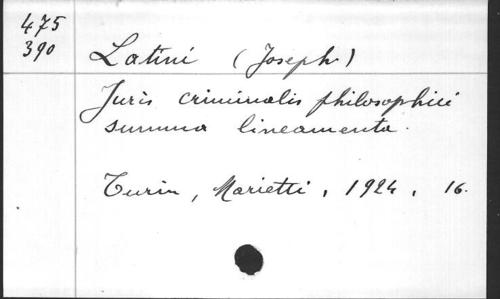 475
390
Latini (Joseph)
Juris criminalis philosophici
summa lineamenta.
Turin, Marietti, 1924, 16.